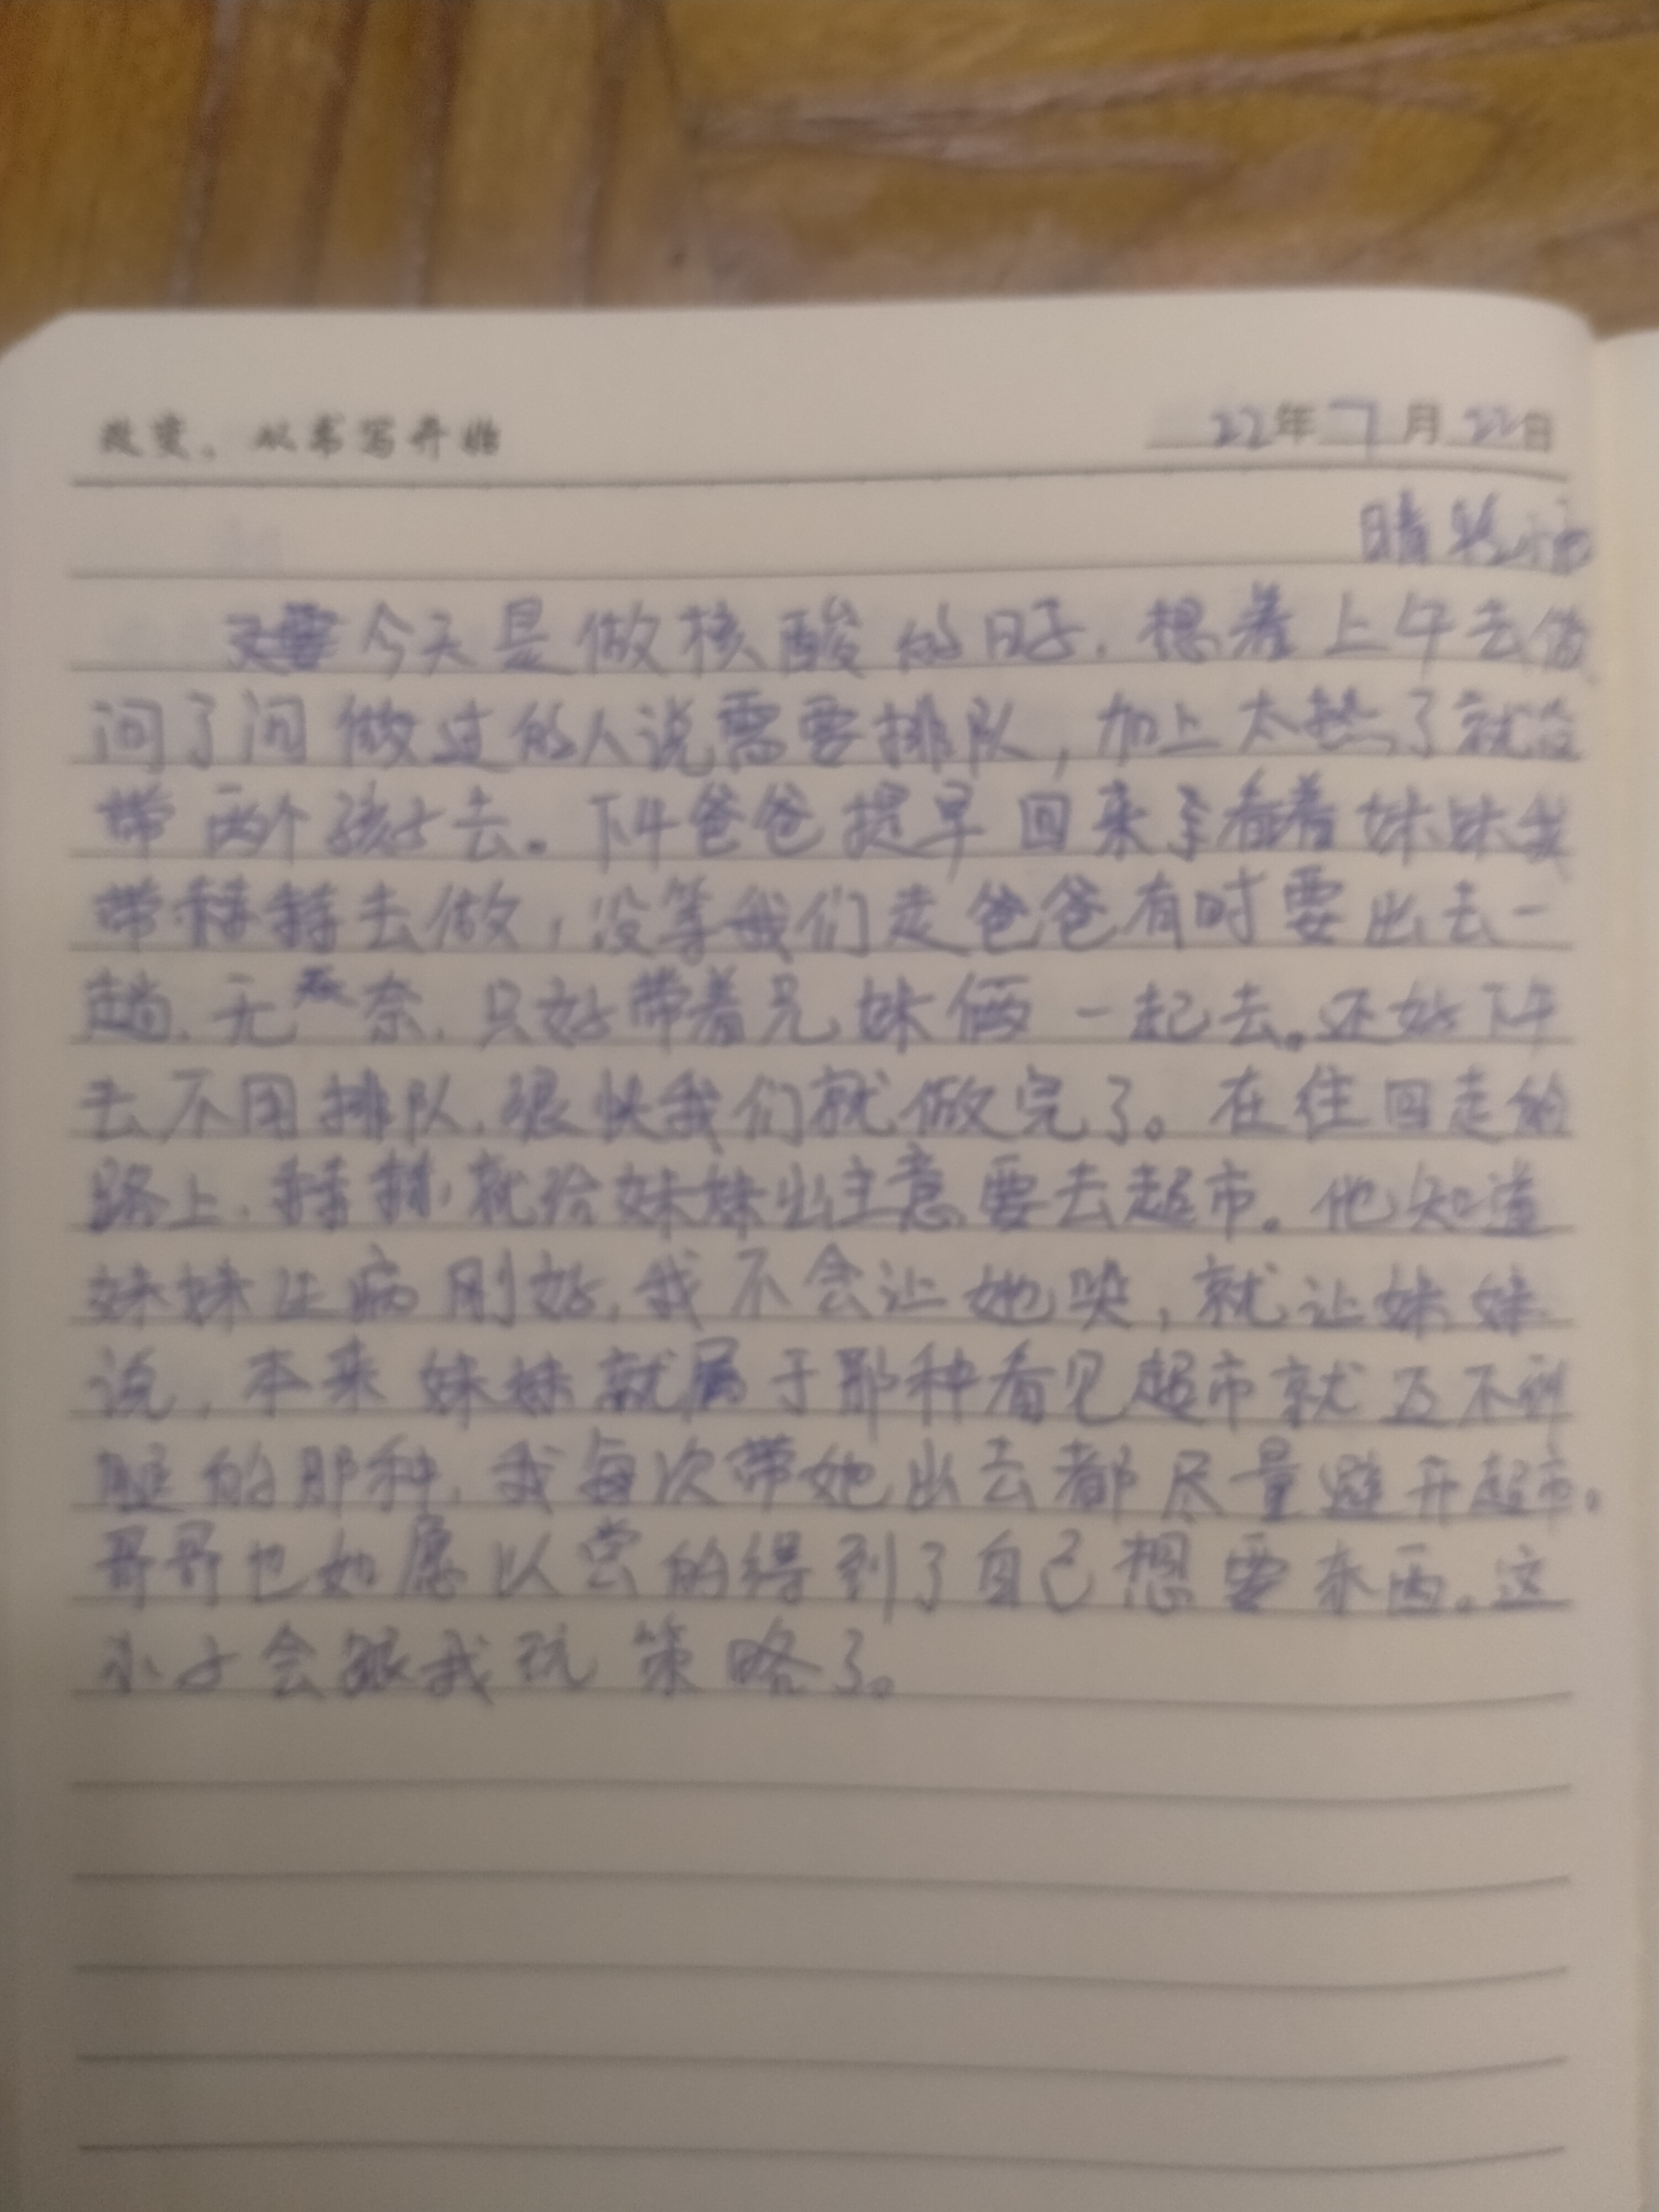 改变，从书写开始 22年7月22日
晴转
今天是做核酸的日子，想着上午去做
问了问做过的人说需要排队，加上太热了就没
带两个孩子去。下午爸爸提早回来了看着妹妹我
带去做，没等我们走爸爸有时要出去一
趟，无奈，只好带着兄妹俩一起去。还好下午
去不用排队，很快我们就做完了。在往回走的
路上，就给妹妹出主意要去超市。他知道
妹妹生病刚好，我不会让她哭，就让妹妹
说，本来妹妹就属于那种看见超市就迈不开
腿的那种，我每次带她出去都尽量避开超市。
哥哥也如愿以尝的得到了自己想要东西。这
小子会跟我玩策略了。